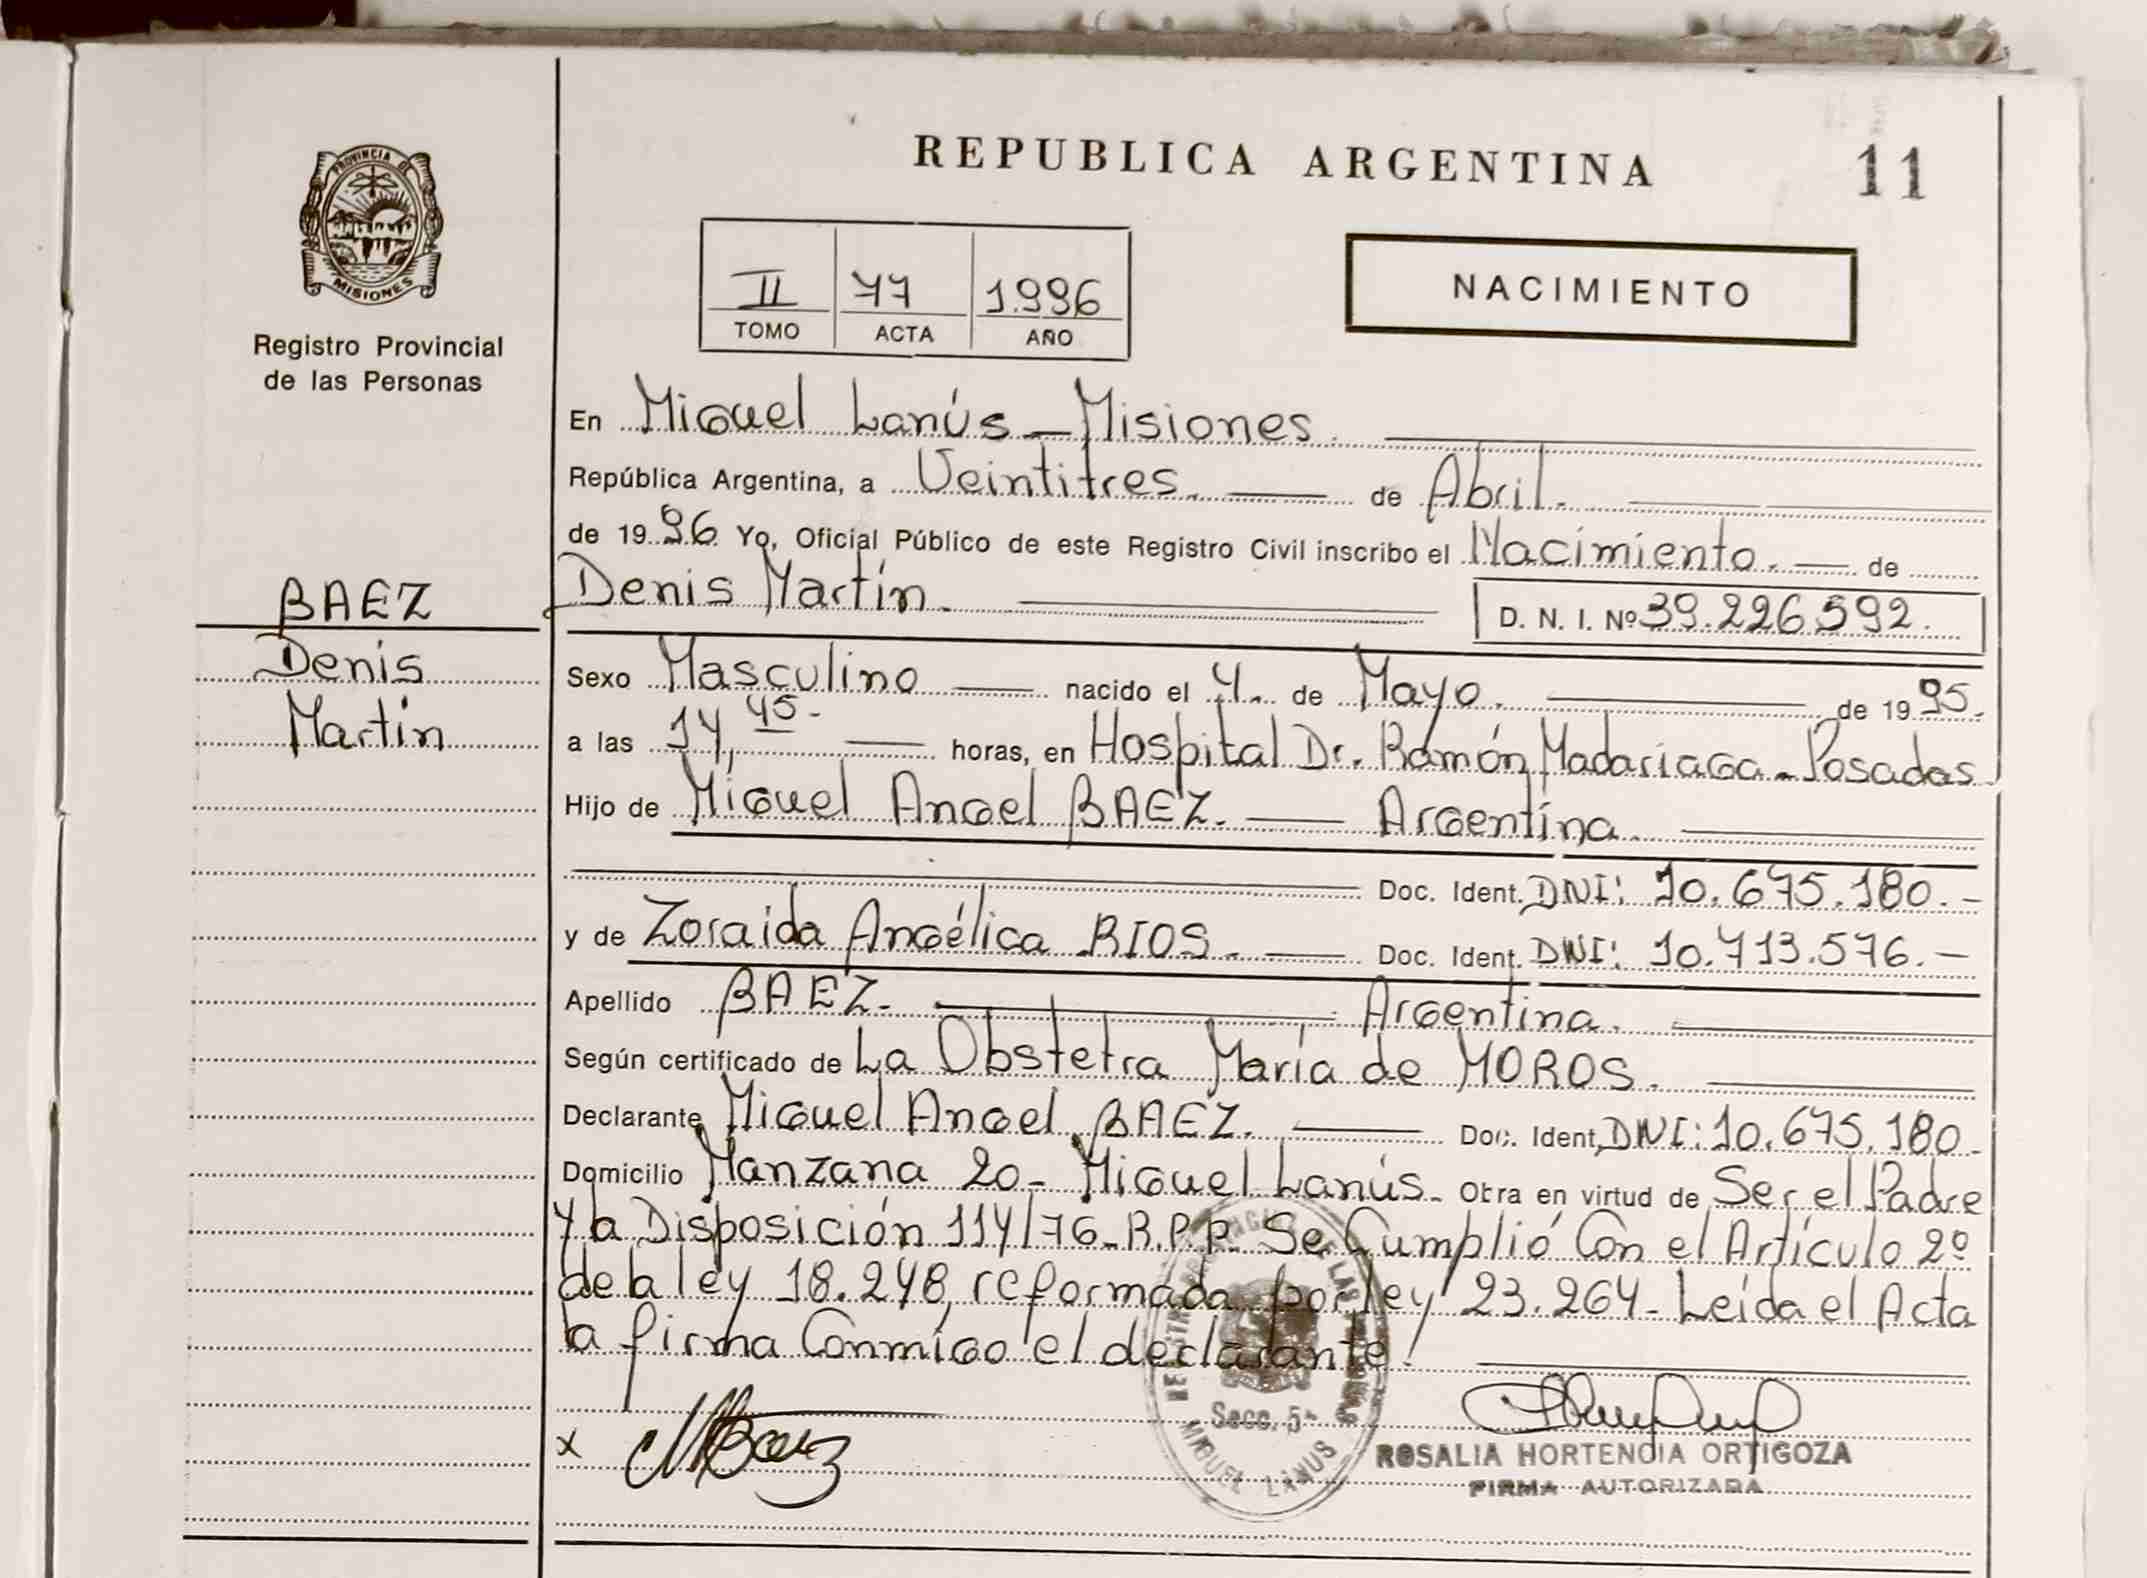 REPUBLICA ARGENTINA
11
PROVINCIA DE
MISIONES
Registro Provincial
de las Personas
II 77 1.996
TOMO ACTA AÑO
NACIMIENTO
En Miguel Lanús - Misiones.
República Argentina, a Veintitres. de Abril.
de 1996. Yo, Oficial Público de este Registro Civil inscribo el Nacimiento. de
BAEZ
Denis
Martín
Denis Martín. D. N. I. Nº 39.226.592.
Sexo Masculino nacido el 4. de Mayo. de 1995.
a las 14,45.- horas, en Hospital Dr. Ramón Madariaga - Posadas
Hijo de Miguel Angel BAEZ. Argentina.
Doc. Ident. DNI: 10.675.180.-
y de Zoraida Angélica RIOS. Doc. Ident. DNI: 10.713.576.-
Apellido BAEZ. Argentina.
Según certificado de La Obstetra María de MOROS.
Declarante Miguel Angel BAEZ. Doc. Ident. DNI: 10.675.180-
Domicilio Manzana 20 - Miguel Lanús - Obra en virtud de Ser el Padre
y la Disposición 114/76 - R.P.P. Se Cumplió Con el Artículo 2º
de la ley 18.248, reformada por ley 23.264 - Leída el Acta
la firma Conmigo el declarante.
x MBaez
Secc. 5ª
MIGUEL LANUS
ROSALIA HORTENCIA ORTIGOZA
FIRMA AUTORIZADA